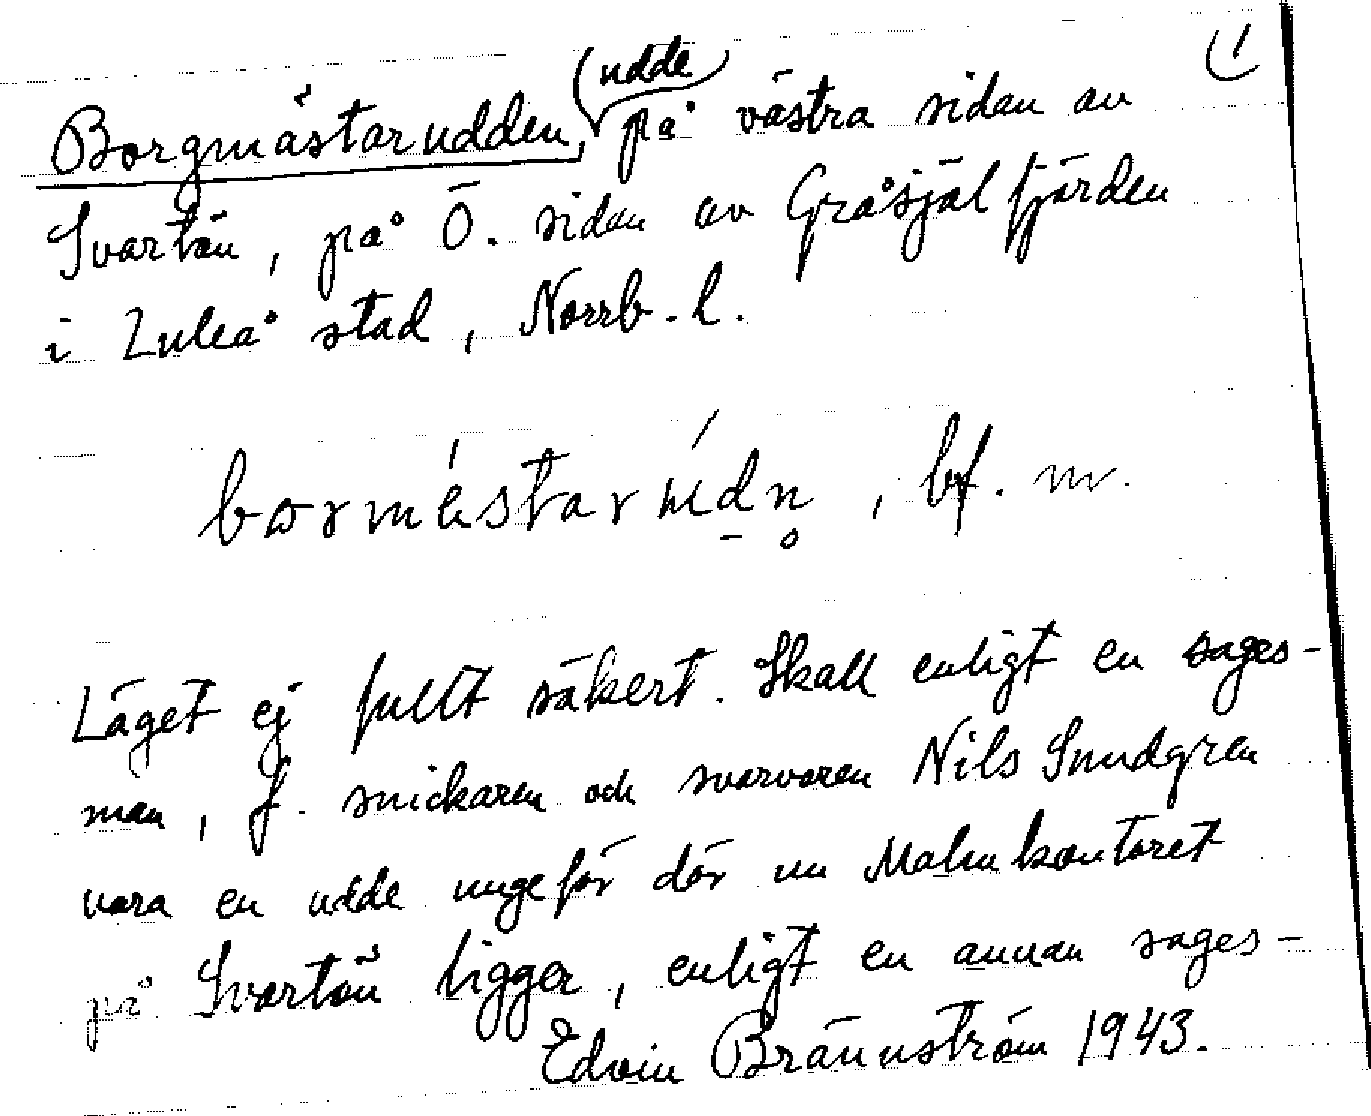 (1
Borgmästarudden, (udde) på västra sidan av
Svartön, på Ö. sidan av Gråsjälfjärden
i Luleå stad, Norrb. l.
bormástarúdn̥, bf. m.
Läget ej fullt säkert. Skall enligt en sages-
man, f. snickaren och svarvaren Nils Sundgren
vara en udde ungefär där nu Malmkontoret
på Svartön ligger, enligt en annan sages-
Edvin Brännström 1943.